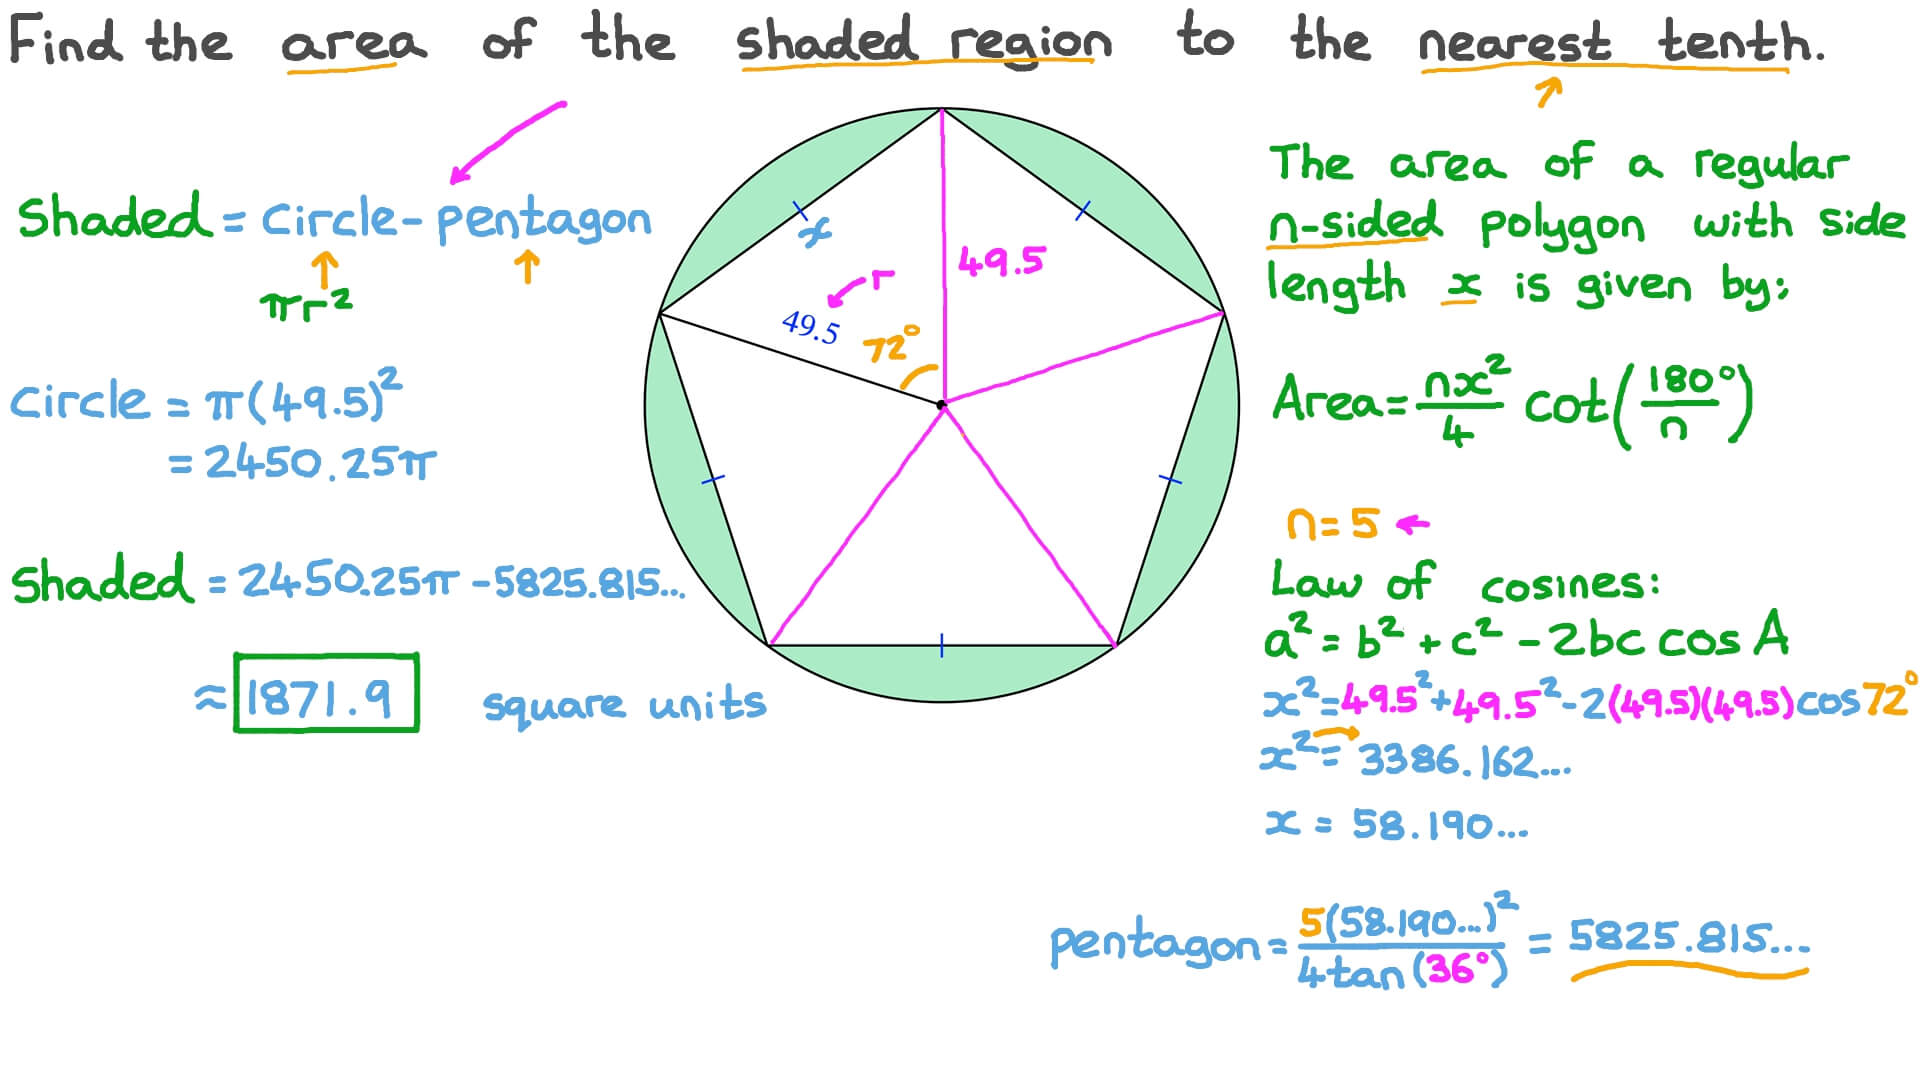 Find the area of the shaded region to the nearest tenth.
Shaded = Circle - pentagon
πr²
Circle = π(49.5)²
= 2450.25π
Shaded = 2450.25π - 5825.815...
≈ 1871.9 square units
x
r
49.5
49.5
72°
The area of a regular
n-sided polygon with side
length x is given by:
Area = nx²/4 cot(180°/n)
n = 5
Law of cosines:
a² = b² + c² - 2bc cos A
x² = 49.5² + 49.5² - 2(49.5)(49.5) cos 72°
x² = 3386.162...
x = 58.190...
pentagon = 5(58.190...)²/4tan(36°) = 5825.815...